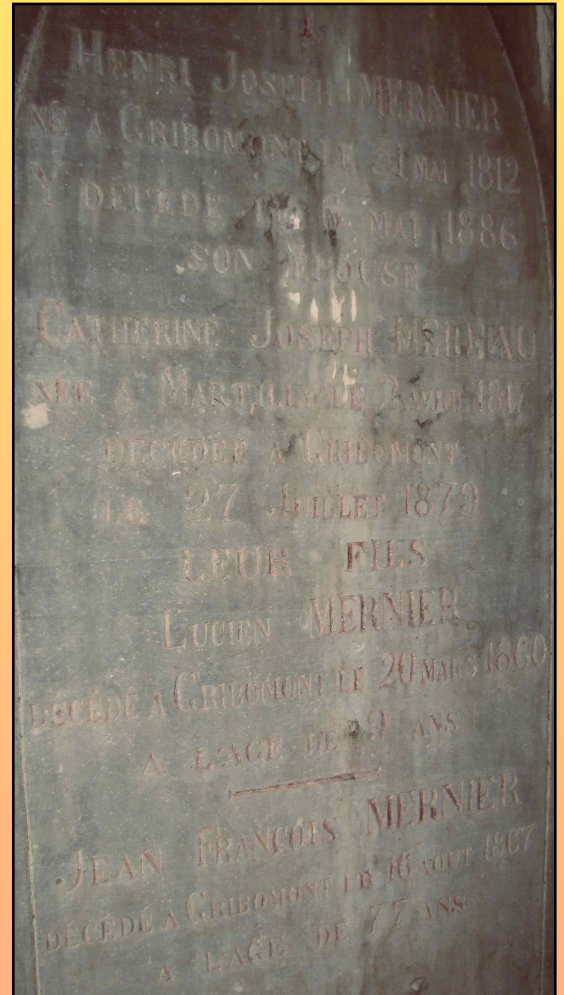 HENRI JOSEPH MERNIER
NÉ A GRIBOMONT LE 31 MAI 1812
Y DÉCÉDÉ MAI 1886
SON EPOUSE
CATHERINE JOSEPH
NÉE A MARTILLY LE 2 AVRIL 1817
DÉCÉDÉE A GRIBOMONT
LE 27 JUILLET 1879
LEUR FILS
LUCIEN MERNIER
DÉCÉDÉ A GRIBOMONT LE 20 MARS 1860
A LAGE DE 9 ANS
JEAN FRANÇOIS MERNIER
DÉCÉDÉ A GRIBOMONT LE 16 AOUT 1867
A LAGE DE 77 ANS